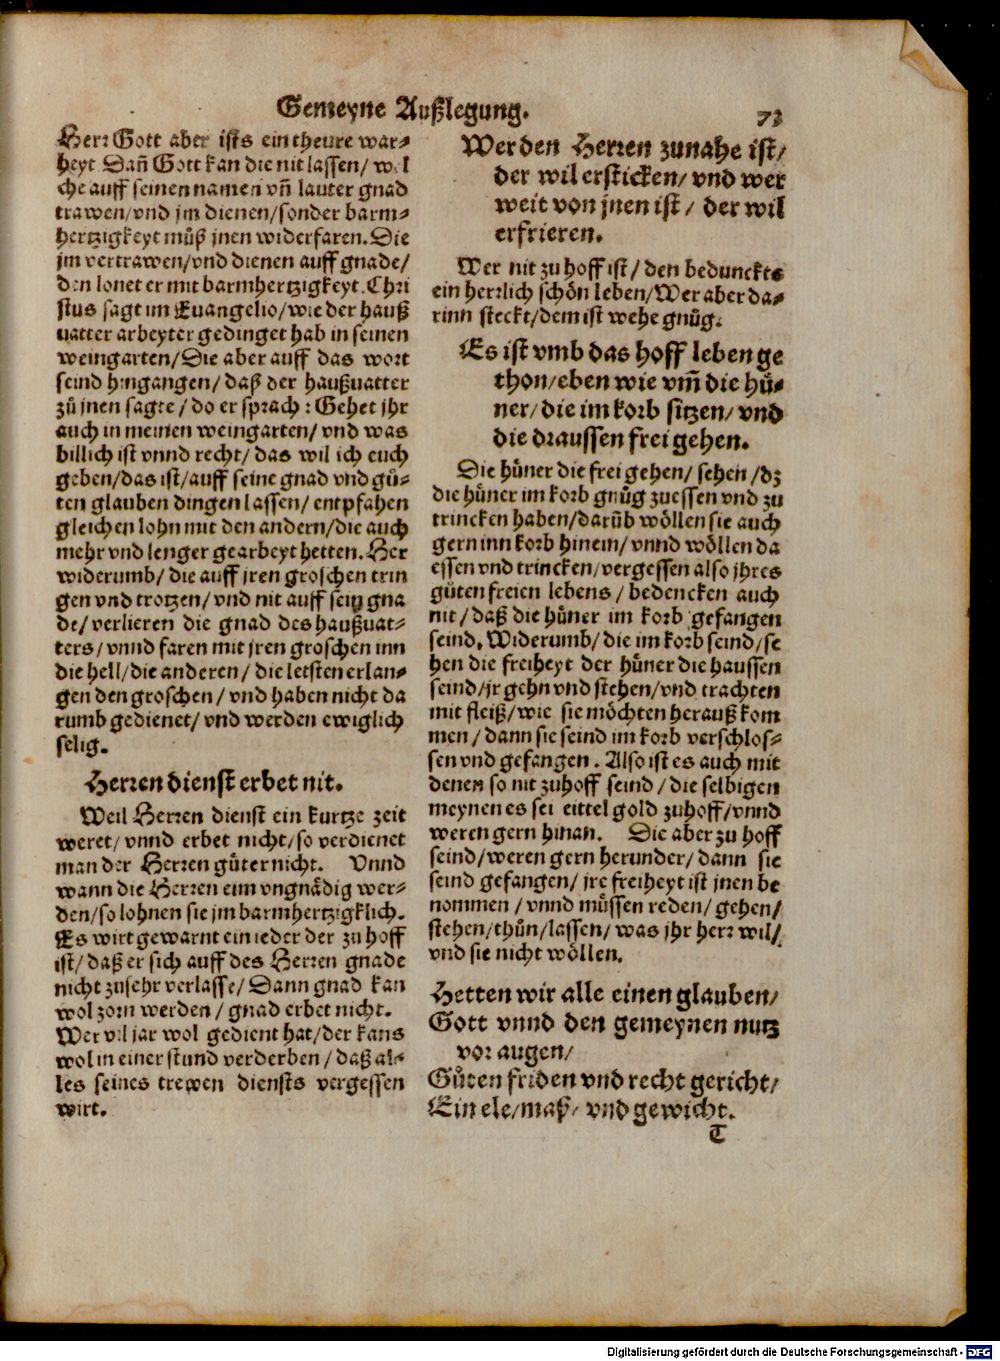 Gemeyne Außlegung.
73
Herr Gott aber ists ein theure war-
heyt Dañ Gott kan die nit lassen/ wel
che auff seinen namen vñ lauter gnad
trawen/vnd jm dienen/sonder barm-
hertzigkeyt můß jnen widerfaren. Die
jm vertrawen/vnd dienen auff gnade/
den lonet er mit barmhertzigkeyt. Chri
stus sagt im Euangelio/wie der hauß
uatter arbeyter gedinget hab in seinen
weingarten/Die aber auff das wort
seind hingangen/ daß der haußuatter
zů jnen sagte/ do er sprach: Gehet jhr
auch in meinen weingarten/ vnd was
billich ist vnnd recht/ das wil ich euch
geben/das ist/auff seine gnad vnd gů-
ten glauben dingen lassen/ entpfahen
gleichen lohn mit den andern/die auch
mehr vnd lenger gearbeyt hetten. Her
widerumb/ die auff jren groschen trin
gen vnd trotzen/ vnd nit auff sein gna
de/ verlieren die gnad des haußuat-
ters/ vnnd faren mit jren groschen inn
die hell/die anderen/ die letsten erlan-
gen den groschen/ vnd haben nicht da
rumb gedienet/ vnd werden ewiglich
selig.
Herren dienst erbet nit.
Weil Herren dienst ein kurtze zeit
weret/ vnnd erbet nicht/so verdienet
man der Herren gůter nicht. Vnnd
wann die Herren eim vngnädig wer-
den/so lohnen sie jm barmhertzigklich.
Es wirt gewarnt ein ieder der zu hoff
ist/ daß er sich auff des Herren gnade
nicht zusehr verlasse/ Dann gnad kan
wol zorn werden/ gnad erbet nicht.
Wer vil jar wol gedient hat/der kans
wol in einer stund verderben/ daß al-
les seines trewen diensts vergessen
wirt.
Wer den Herren zunahe ist/
der wil ersticken/ vnd wer
weit von jnen ist/ der wil
erfrieren.
Wer nit zu hoff ist/ den beduncktes
ein herrlich schön leben/Wer aber da-
rinn steckt/dem ist wehe gnůg.
Es ist vmb das hoff leben ge
thon/eben wie vm̃ die hů-
ner/ die im korb sitzen/ vnd
die draussen frei gehen.
Die hůner die frei gehen/ sehen/dz
die hůner im korb gnůg zuessen vnd zu
trincken haben/darũb wöllen sie auch
gern inn korb hinein/ vnnd wöllen da
essen vnd trincken/vergessen also jhres
gůten freien lebens/ bedencken auch
nit/ daß die hůner im korb gefangen
seind. Widerumb/ die im korb seind/se
hen die freiheyt der hůner die haussen
seind/jr gehn vnd stehen/vnd trachten
mit fleiß/wie sie möchten herauß kom
men/ dann sie seind im korb verschlos-
sen vnd gefangen. Also ist es auch mit
denen so nit zuhoff seind/ die selbigen
meynen es sei eittel gold zuhoff/vnnd
weren gern hinan. Die aber zu hoff
seind/weren gern herunder/ dann sie
seind gefangen/ jre freiheyt ist jnen be
nommen/ vnnd můssen reden/ gehen/
stehen/thůn/lassen/ was jhr herr wil/
vnd sie nicht wöllen.
Hetten wir alle einen glauben/
Gott vnnd den gemeynen nutz
vor augen/
Gůten friden vnd recht gericht/
Ein ele/maß/ vnd gewicht.
T
Digitalisierung gefördert durch die Deutsche Forschungsgemeinschaft - DFG